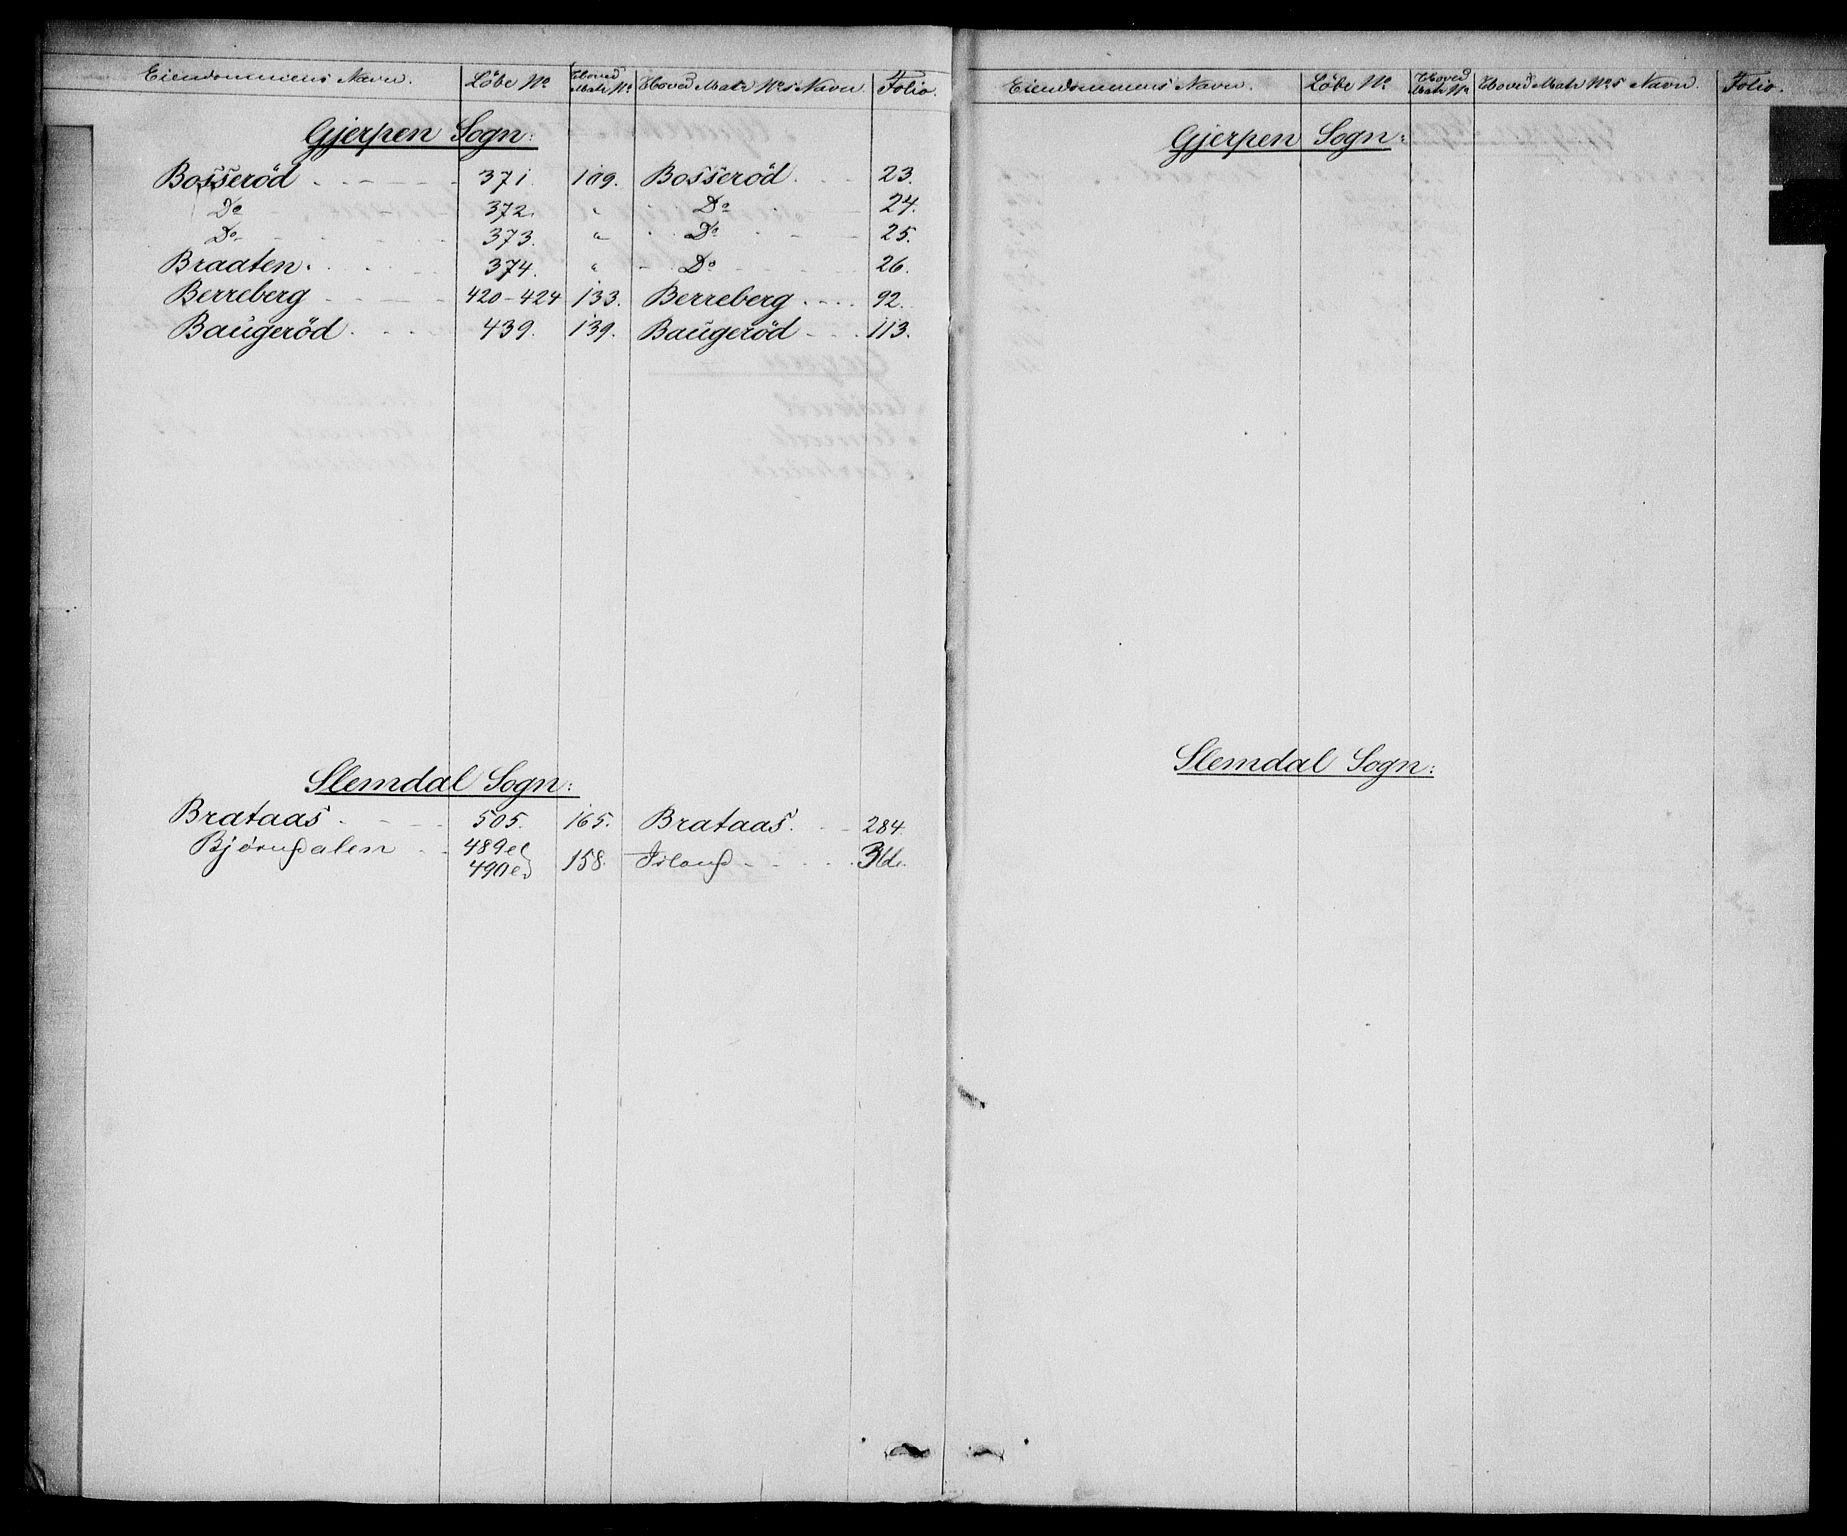 Eiendommens Navn. Löbe No Hoved Matr No Hoved Matr No s Navn Folio.
Gjerpen Sogn:
Bosseröd 371. 109. Bosseröd 23.
Do 372. " Do 24.
Do 373. " Do 25.
Braaten. 374. " Do 26.
Berreberg 420-424 133. Berreberg 92.
Baugeröd 439. 139. Baugeröd 113.
Slemdal Sogn:
Brataas 505. 165. Brataas. 284.
Bjørndalen 489
490 158.
Eiendommens Navn. Löbe No Hoved Matr No Hoved Matr No s Navn Folio.
Gjerpen Sogn:
Slemdal Sogn: